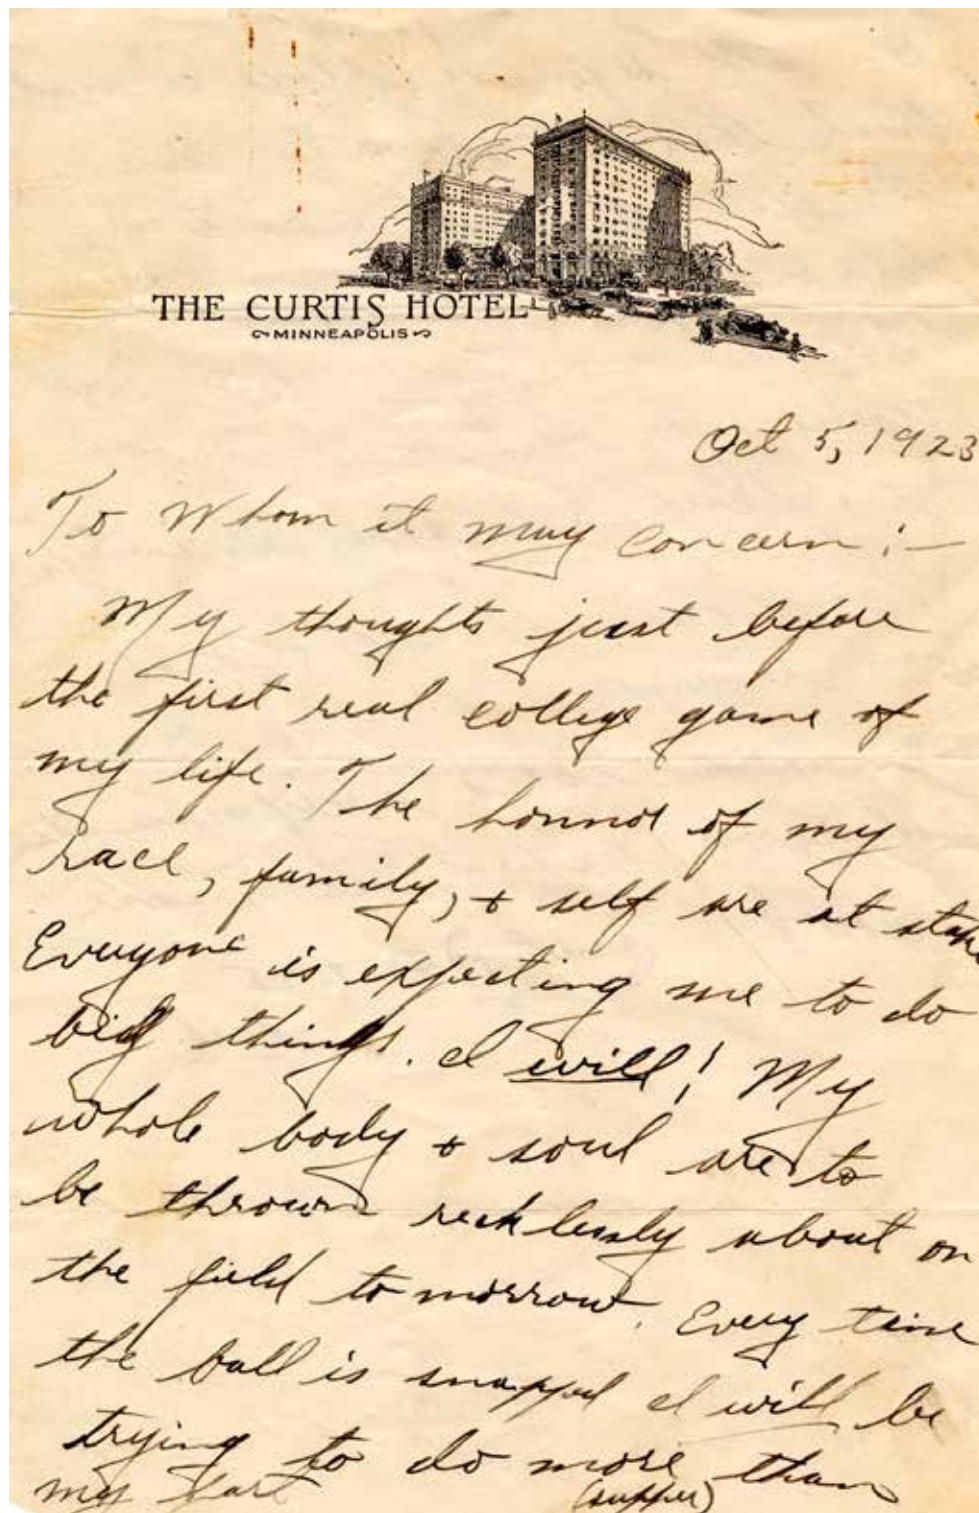 THE CURTIS HOTEL
MINNEAPOLIS
Oct 5, 1923
To Whom it may concern :—
My thoughts just before
the first real college game of
my life. The honnor of my
race, family, + self are at stake
Everyone is expecting me to do
big things. I will! My
whole body + soul are to
be thrown recklessly about on
the field tomorrow. Every time
the ball is snapped I will be
trying to do more than
my part
(supper)